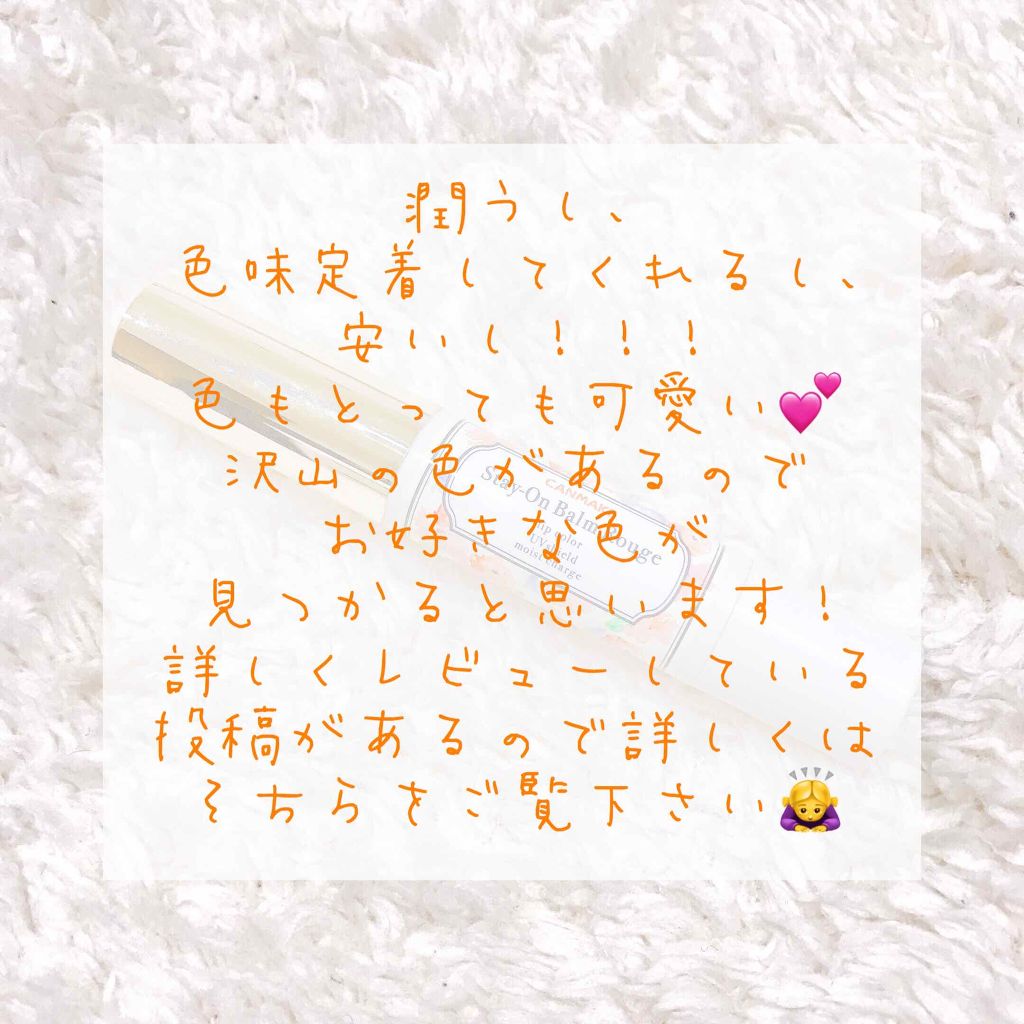 潤うし、
色味定着してくれるし、
安いし！！！
色もとっても可愛い💕
沢山の色があるので
お好きな色が
見つかると思います！
詳しくレビューしている
投稿があるので詳しくは
そちらをご覧下さい🙇‍♀️
CANMAKE
Stay-On Balm Rouge
lip color
UV shield
moist charge